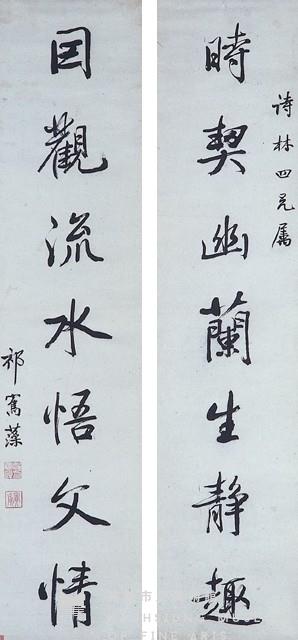 詩林四兄属
時契幽蘭生靜趣
因觀流水悟文情
祁寯藻